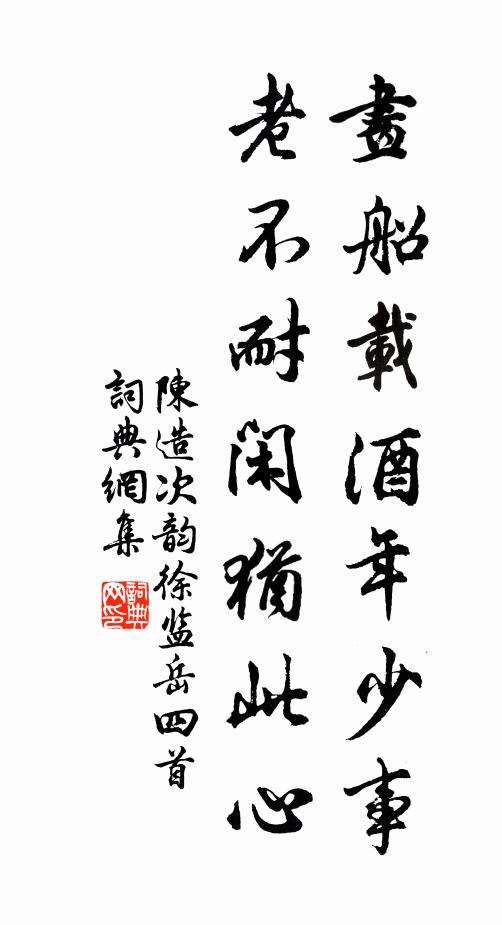 畫船載酒年少事
老不耐閑猶此心
陳造次韵徐监岳四首
詞典網集
詞典网印